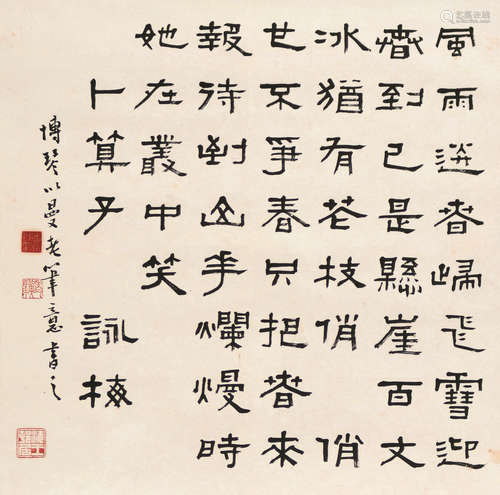 風雨送春歸飛雪迎
春到已是縣崖百丈
冰猶有花枝俏 俏
也不爭春只把春來
報待到山花爛熳時
她在叢中笑
卜算子 詠梅
博琴以曼老筆意書之